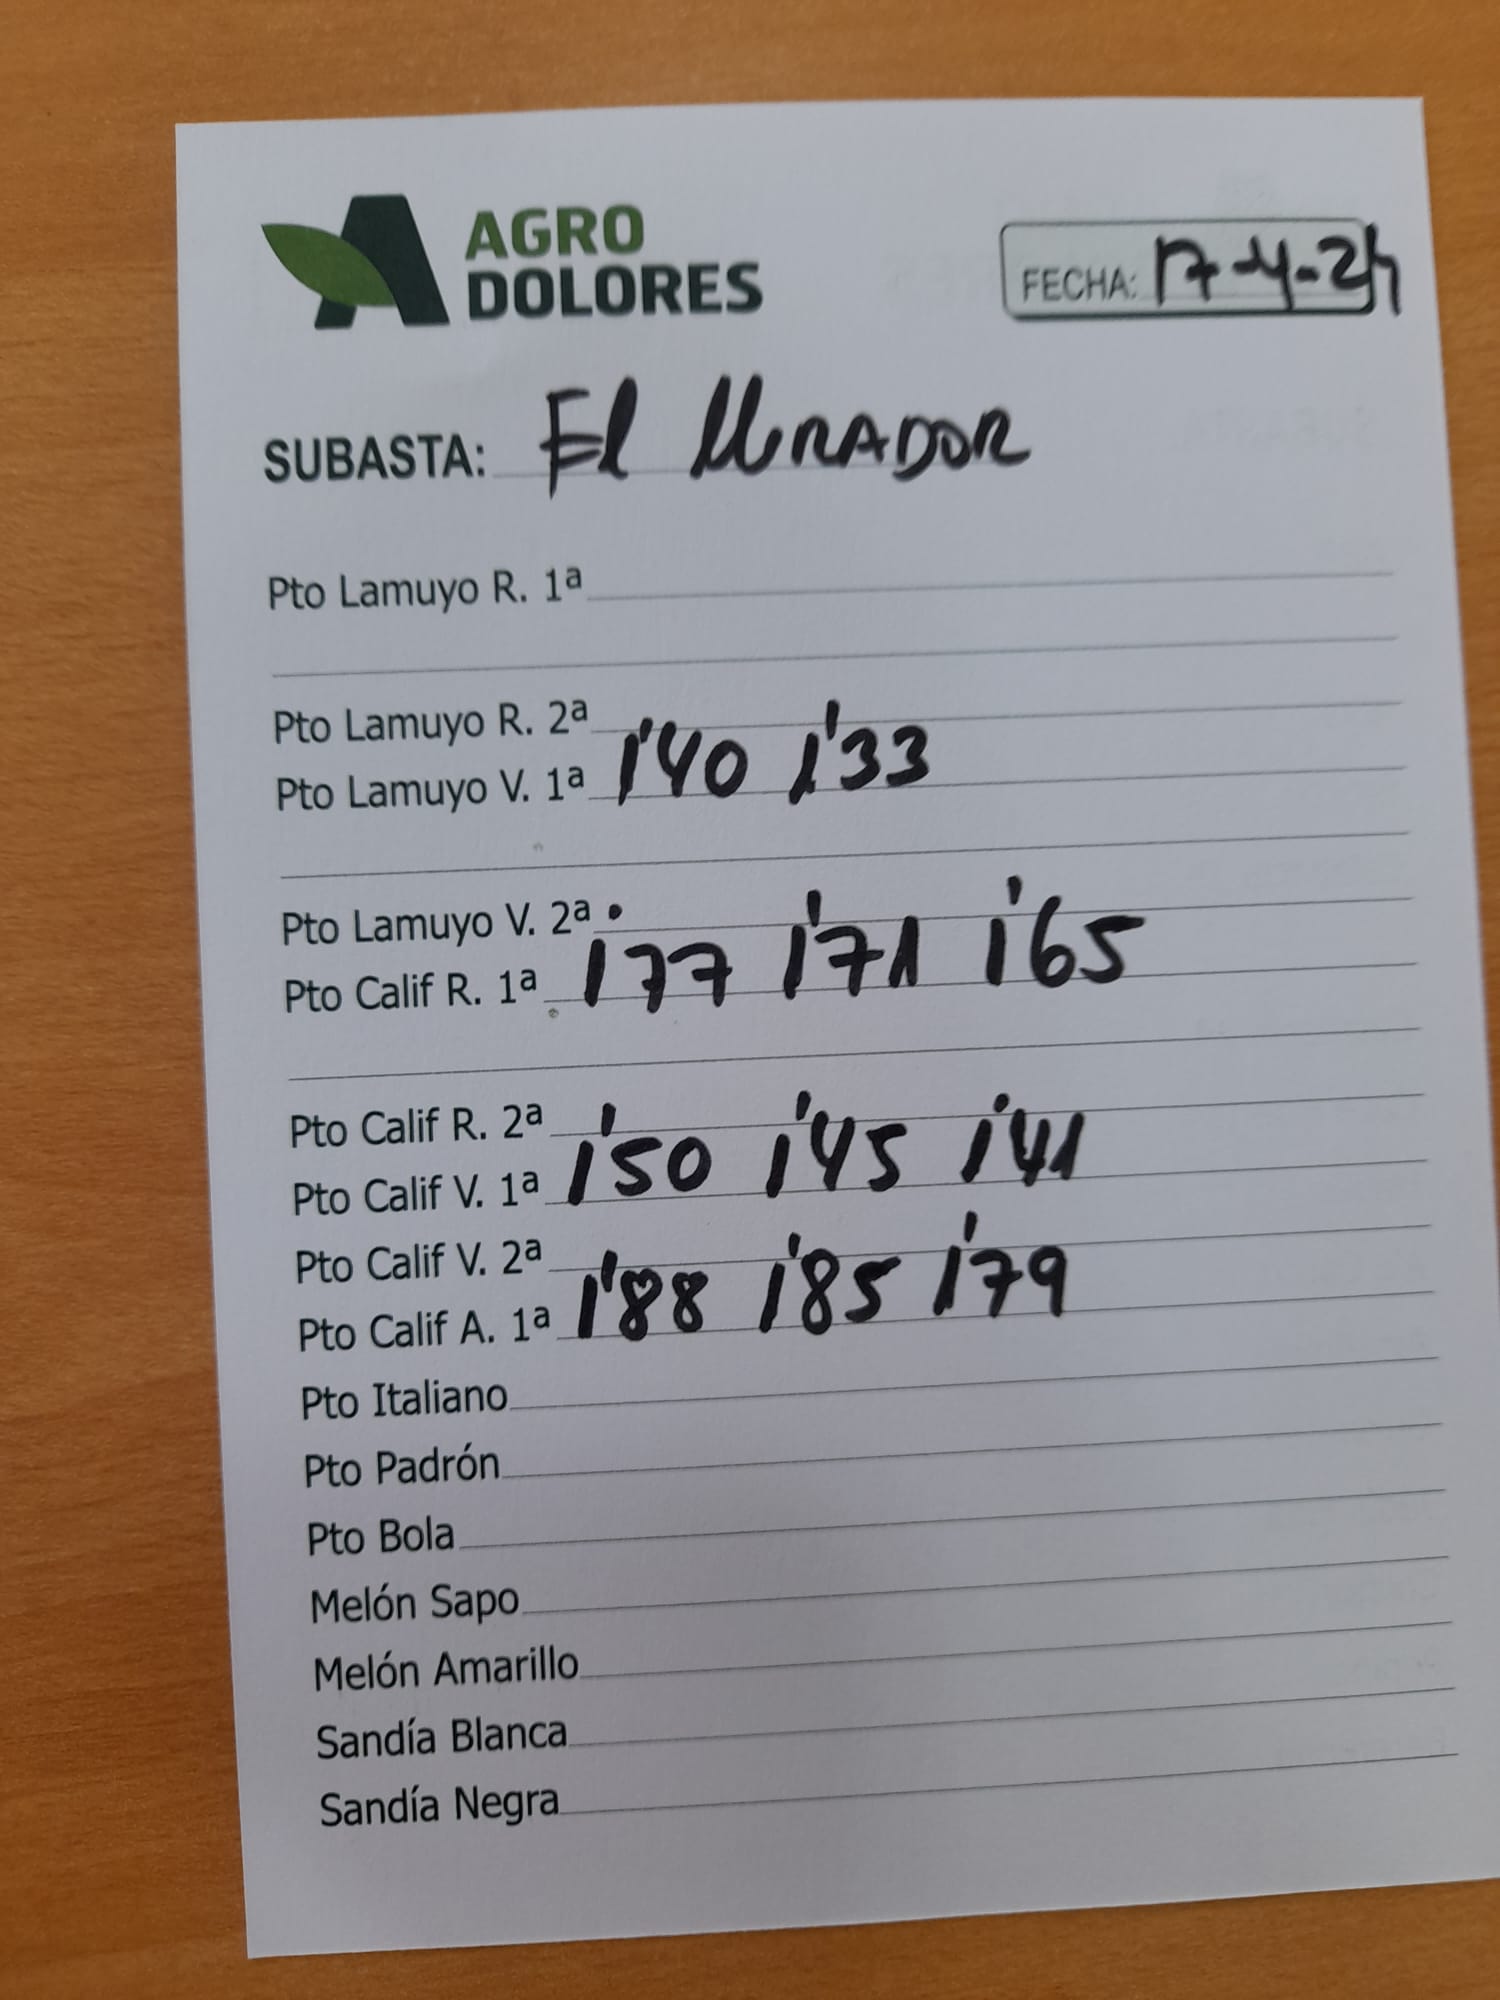 AGRO
DOLORES
FECHA: 17-4-24
SUBASTA: El MIRADOR
Pto Lamuyo R. 1ª
Pto Lamuyo R. 2ª
Pto Lamuyo V. 1ª 1'40 1'33
Pto Lamuyo V. 2ª
Pto Calif R. 1ª 1'77 1'71 1'65
Pto Calif R. 2ª
Pto Calif V. 1ª 1'50 1'45 1'41
Pto Calif V. 2ª
Pto Calif A. 1ª 1'88 1'85 1'79
Pto Italiano
Pto Padrón
Pto Bola
Melón Sapo
Melón Amarillo
Sandía Blanca
Sandía Negra